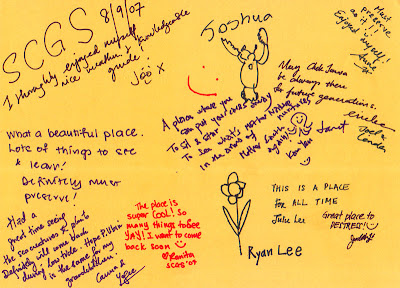 SCGS 8/9/07
I thoroughly enjoyed myself
nice weather & knowledgeable
guide
Joo X
Joshua
Must
preserve
as it!!
Enjoyed myself!
A place where you
can put your cares away
To sit & stare
To see what's mother nature
in the arms of
Mother Earth
again!
Kar Yen
May Chek Jawa
be always there
for future generations.
Janet
What a beautiful place.
Lots of things to see
& learn!
Definitely must
preserve!
Had a
great time seeing
the sea creatures & plants
Definitely will come back
during low tide. Hope P. Ubin
is the same for my
grandchildren.
The place is
super cool! So
many things to see
YAY! I want to come
back soon
Ranita
SCGS '07
THIS IS A PLACE
FOR ALL TIME
Julie Lee
Great place to
DESTRESS!
Ryan Lee